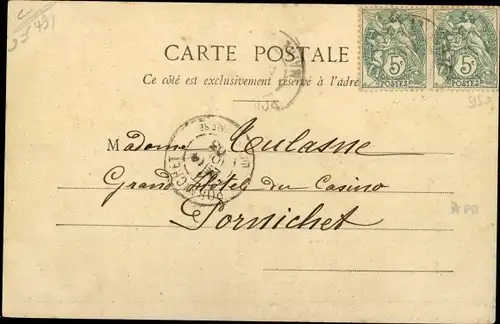 CARTE POSTALE
Ce côté est exclusivement réservé à l'adre
5c 5c
POSTES POSTES
Madame Toulasne
Grand Hôtel du Casino
Pornichet